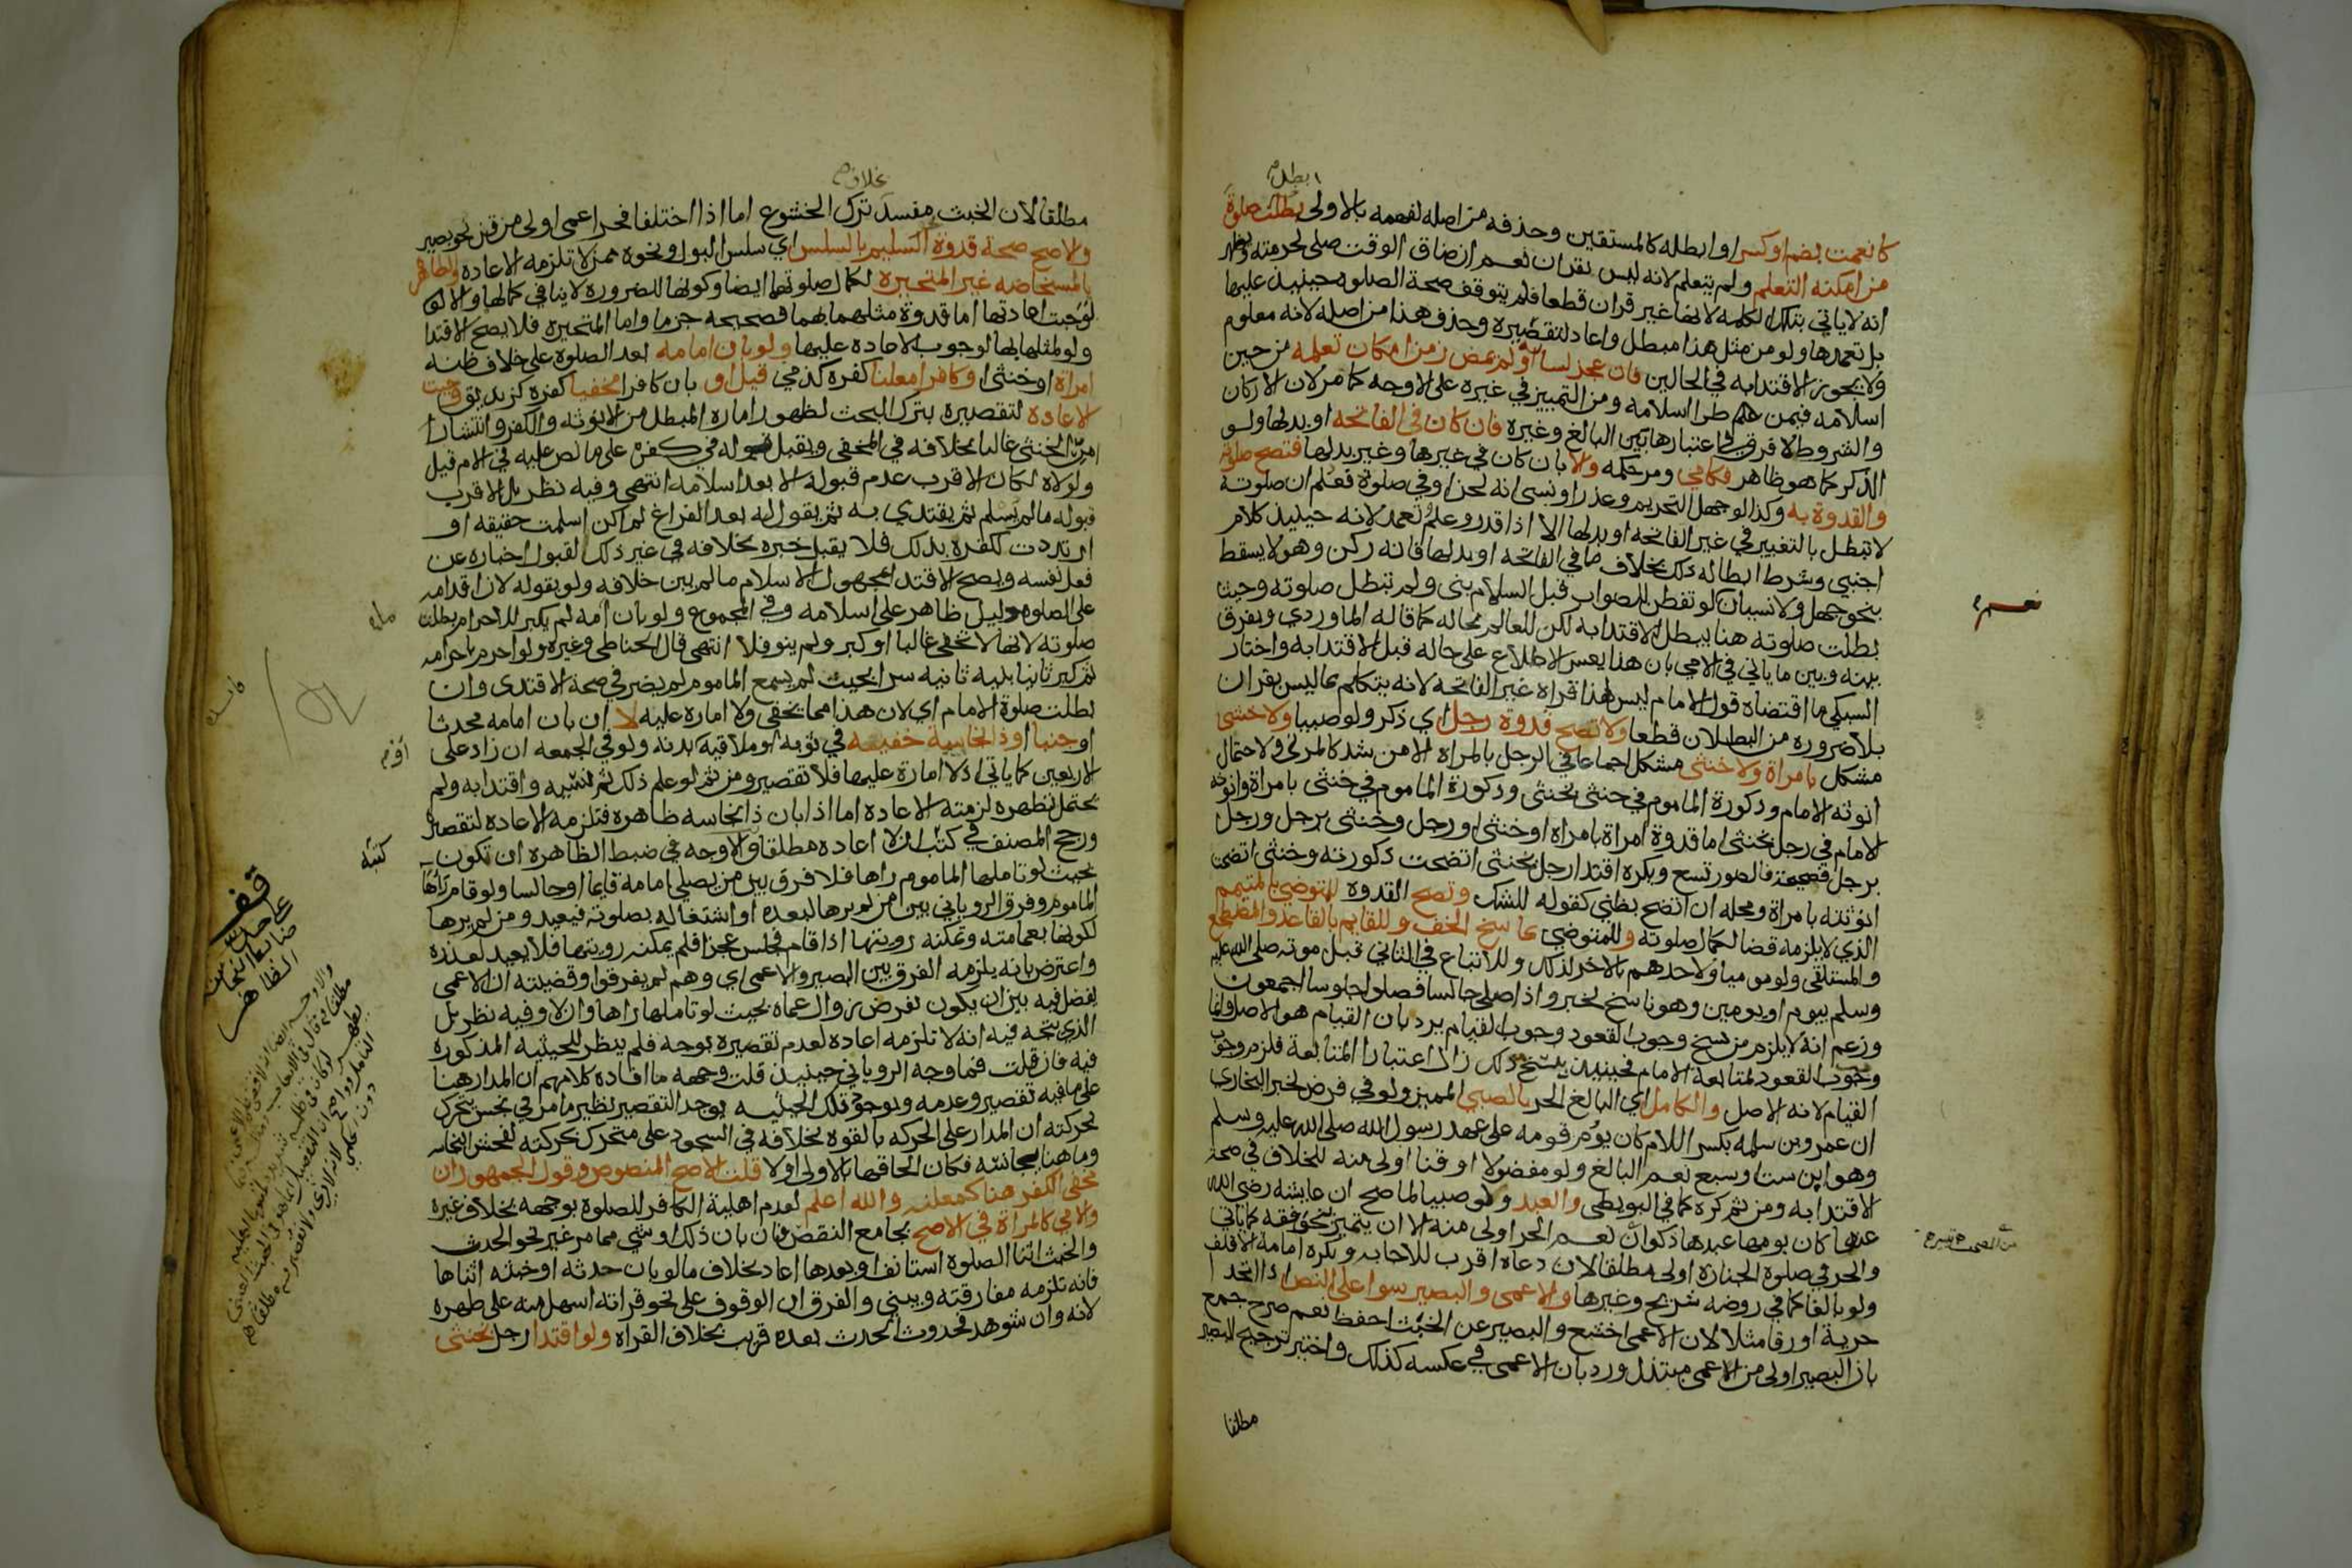 ابطل
كانعمت بضم او كسر او ابطله كالمستقين وحذفه من اصله لفهمه بالاولى بطلت صلوة
من امكنه التعلم ولم يتعلم لانه ليس بقران نعم ان ضاق الوقت صلى لحرمته
انه لا ياتي بتلك الكلمه لانها غير قران قطعا فلم يتوقف صحة الصلوه حينيذ عليها
بل تعمدها ولو من مثل هذا مبطل واعاد لتقصيره وحذف هذا من اصله لانه معلوم
ولا يجوز الاقتدا به في الحالين فان عجز لسانه او لم يمض زمن امكان تعلمه من حين
اسلامه فيمن طرا اسلامه ومن التمييز في غيره على الاوجه كما مر لان الاركان
والشروط لا فرق في اعتبارها بين البالغ وغيره فان كان في الفاتحه او بدلها ولو
الذكر كما هو ظاهر فكامي ومر حكمه والا بان كان في غيرها وغير بدلها فتصح صلوته
والقدوة به وكذا لو جهل التحريم وعذر او نسي انه لحن او في صلوة فعلم ان صلوته
لا تبطل بالتغيير في غير الفاتحه او بدلها الا اذا قدر وعلم وتعمد لانه حينيذ كلام
اجنبي وشرط ابطاله ذلك بخلاف ما في الفاتحه او بدلها فانه ركن وهو لا يسقط
بنحو جهل ولا نسيان لو تفطن للصواب قبل السلام بنى ولم تبطل صلوته وحيث
بطلت صلوته هنا يبطل الاقتدا به لكن للعالم بحاله كما قاله الماوردي ويفرق
بينه وبين ما ياتي في الامي بان هذا يعسر الاطلاع على حاله قبل الاقتدا به واختار
السبكي ما اقتضاه قول الامام ليس لهذا قراة غير الفاتحه لانه يتكلم بما ليس بقران
بلا ضروره من البطلان قطعا ولا تصح قدوة رجل اي ذكر ولو صبيا ولا خنثى
مشكل بامراة ولا خنثى مشكل اجماعا في الرجل بالمراة الا من شد كالمزني ولاحتمال
انوثه الامام وذكورة الماموم في خنثى بخنثى وذكورة الماموم في خنثى بامراة وانوثه
الامام في رجل بخنثى اما قدوة امراة بامراة او خنثى او رجل وخنثى برجل ورجل
برجل فصحيحة فالصور تسع ويكره اقتدا رجل بخنثى اتضحت ذكورته وخنثى اتضحت
انوثته بامراة ومحله ان اتضح بظني كقوله للشك وتصح القدوة للمتوضي بالمتيمم
الذي لا يلزمه قضا لكمال صلوته وللمتوضي بماسح الخف وللقايم بالقاعد والمضطجع
والمستلقي ولو موميا ولاحدهم بالاخر لذلك وللاتباع في الثاني قبل موته صلى الله عليه
وسلم بيوم او يومين وهو ناسخ لخبر واذا صلى جالسا فصلوا جلوسا اجمعون
وزعم انه لا يلزم من نسخ وجوب القعود وجوب القيام يرد بان القيام هو الاصل وانما
وجوب القعود لمتابعة الامام فحينيذ نسخ ذلك زال اعتبار المتابعة فلزم وجوب
القيام لانه الاصل والكامل اي البالغ الحر بالصبي المميز ولو في فرض لخبر البخاري
ان عمرو بن سلمه بكسر اللام كان يؤم قومه على عهد رسول الله صلى الله عليه وسلم
وهو ابن ست او سبع نعم البالغ ولو مفضولا او قنا اولى منه للخلاف في صحة
الاقتدا به ومن ثم كره كما في البويطي والعبد ولو صبيا لما صح ان عايشه رضي الله
عنها كان يومها عبدها ذكوان نعم الحر اولى منه الا ان يتميز بنحو فقه كما ياتي
والحر في صلوة الجنازة اولى مطلقا لان دعاه اقرب للاجابه ويكره امامة الاقلف
ولو بالغا كما في روضه شريح وغيرها والاعمى والبصير سوا على النص اذا اتحدا
حرية او رقا مثلا لان الاعمى اخشع والبصير عن الخبث احفظ نعم صرح جمع
بان البصير اولى من الاعمى مبتذل ورد بان الاعمى في عكسه كذلك واختير ترجيح البصير
مطلقا
نعم
بخلاف
مطلقا لان الخبث مفسد ترك الخشوع اما اذا اختلفا فحر اعمى اولى من قن بصير
والاصح صحة قدوة السليم بالسلس اي سلس البول ونحوه ممن لا تلزمه الاعاده والطاهر
بالمستحاضه غير المتحيره لكمال صلوتها ايضا وكونها للضروره لا ينافي كمالها والا
لوجبت اعادتها اما قدوة مثلهما بهما فصحيحه جزما واما المتحيره فلا يصح الاقتدا
ولو لمثلها بها لوجوب الاعاده عليها ولو بان امامه بعد الصلوة على خلاف ظنه
امراة او خنثى او كافرا معلنا كفره كذمي قيل او بان كافرا مخفيا كفره كزنديق وجبت
الاعاده لتقصيره بترك البحث لظهور اماره المبطل من الانوثه والكفر وانتشار
امر الخنثى غالبا بخلافه في المخفى ويقبل قوله في كفره على ما نص عليه في الام قيل
ولولاه لكان الاقرب عدم قبوله الا بعد اسلامه انتهى وفيه نظر بل الاقرب
قبوله ما لم يسلم ثم يقتدي به ثم يقول له بعد الفراغ لم اكن اسلمت حقيقه او
ارتددت لكفره بذلك فلا يقبل خبره بخلافه في غير ذلك لقبول اخباره عن
فعل نفسه ويصح الاقتدا بمجهول الاسلام ما لم يبن خلافه ولو بقوله لان اقدامه
على الصلوه دليل ظاهر على اسلامه وفي المجموع ولو بان امامه لم يكبر للاحرام بطلت
صلوته لانها لا تخفى غالبا او كبر ولم ينو فلا انتهى قال الحناطي وغيره ولو احرم باحرامه
ثم كبر ثانيا بنية ثانيه سرا بحيث لم يسمع الماموم لم يضر في صحة الاقتدى وان
بطلت صلوة الامام اي لان هذا مما يخفى ولا امارة عليه لا ان بان امامه محدثا
او جنبا او ذا نجاسة خفيفه في ثوبه او ملاقيه او بدنه ولو في الجمعه ان زاد على
الاربعين كما ياتي اذ لا امارة عليها فلا تقصير ومن ثم لو علم ذلك ثم نسيه واقتدا به ولم
يحتمل تطهره لزمته الاعاده اما اذا بان ذا نجاسه ظاهره فتلزمه الاعاده لتقصيره
ورجح المصنف في كتب ان لا اعاده مطلقا والاوجه في ضبط الظاهره ان تكون
بحيث لو تاملها الماموم راها فلا فرق بين من يصلي امامه قايما او جالسا ولو قام راها
الماموم وفرق الروياني بين من لم يرها لبعده او اشتغاله بصلوته فيعيد ومن لم يرها
لكونها بعمامته وتمكنه رويتها اذا قام فجلس عجزا فلم يمكنه رويتها فلا يعيد لعذره
واعترض بانه يلزمه الفرق بين البصير والاعمى اي وهم لم يفرقوا وقضيته ان الاعمى
يفصل فيه بين ان يكون بفرض زوال عماه بحيث لو تاملها راها وان لا وفيه نظر بل
الذي يتجه فيه انه لا تلزمه اعاده لعدم تقصيره بوجه فلم ينظر للحيثيه المذكوره
فيه فان قلت فما وجه الروياني حينيذ قلت وجهه ما افاده كلامهم ان المدار هنا
على ما فيه تقصير وعدمه وبوجود تلك الحيثيه يوجد التقصير نظير ما مر في نجس يتحرك
بحركته ان المدار على الحركه بالقوه بخلافه في السجود على متحرك بحركته لفحش النجاسه
وما هنا بجانسه فكان الحاقها بالاولى اولا قلت الاصح المنصوص وقول الجمهور ان
مخفي الكفر هنا كمعلنه والله اعلم لعدم اهلية الكافر للصلوة بوجه بخلاف غيره
والامي كالمراة في الاصح بجامع النقص فان بان ذلك او شي مما مر غير نحو الحدث
والخبث اثنا الصلوة استانفا وبعدها اعاد بخلاف ما لو بان حدثه او خبثه اثناها
فانه تلزمه مفارقته ويبني والفرق ان الوقوف على نحو قراته اسهل منه على طهره
لانه وان شوهد فحدوث الحدث بعده قريب بخلاف القراه ولو اقتدا رجل بخنثى
قف
على حد
ضابط النجاسه
الظاهره